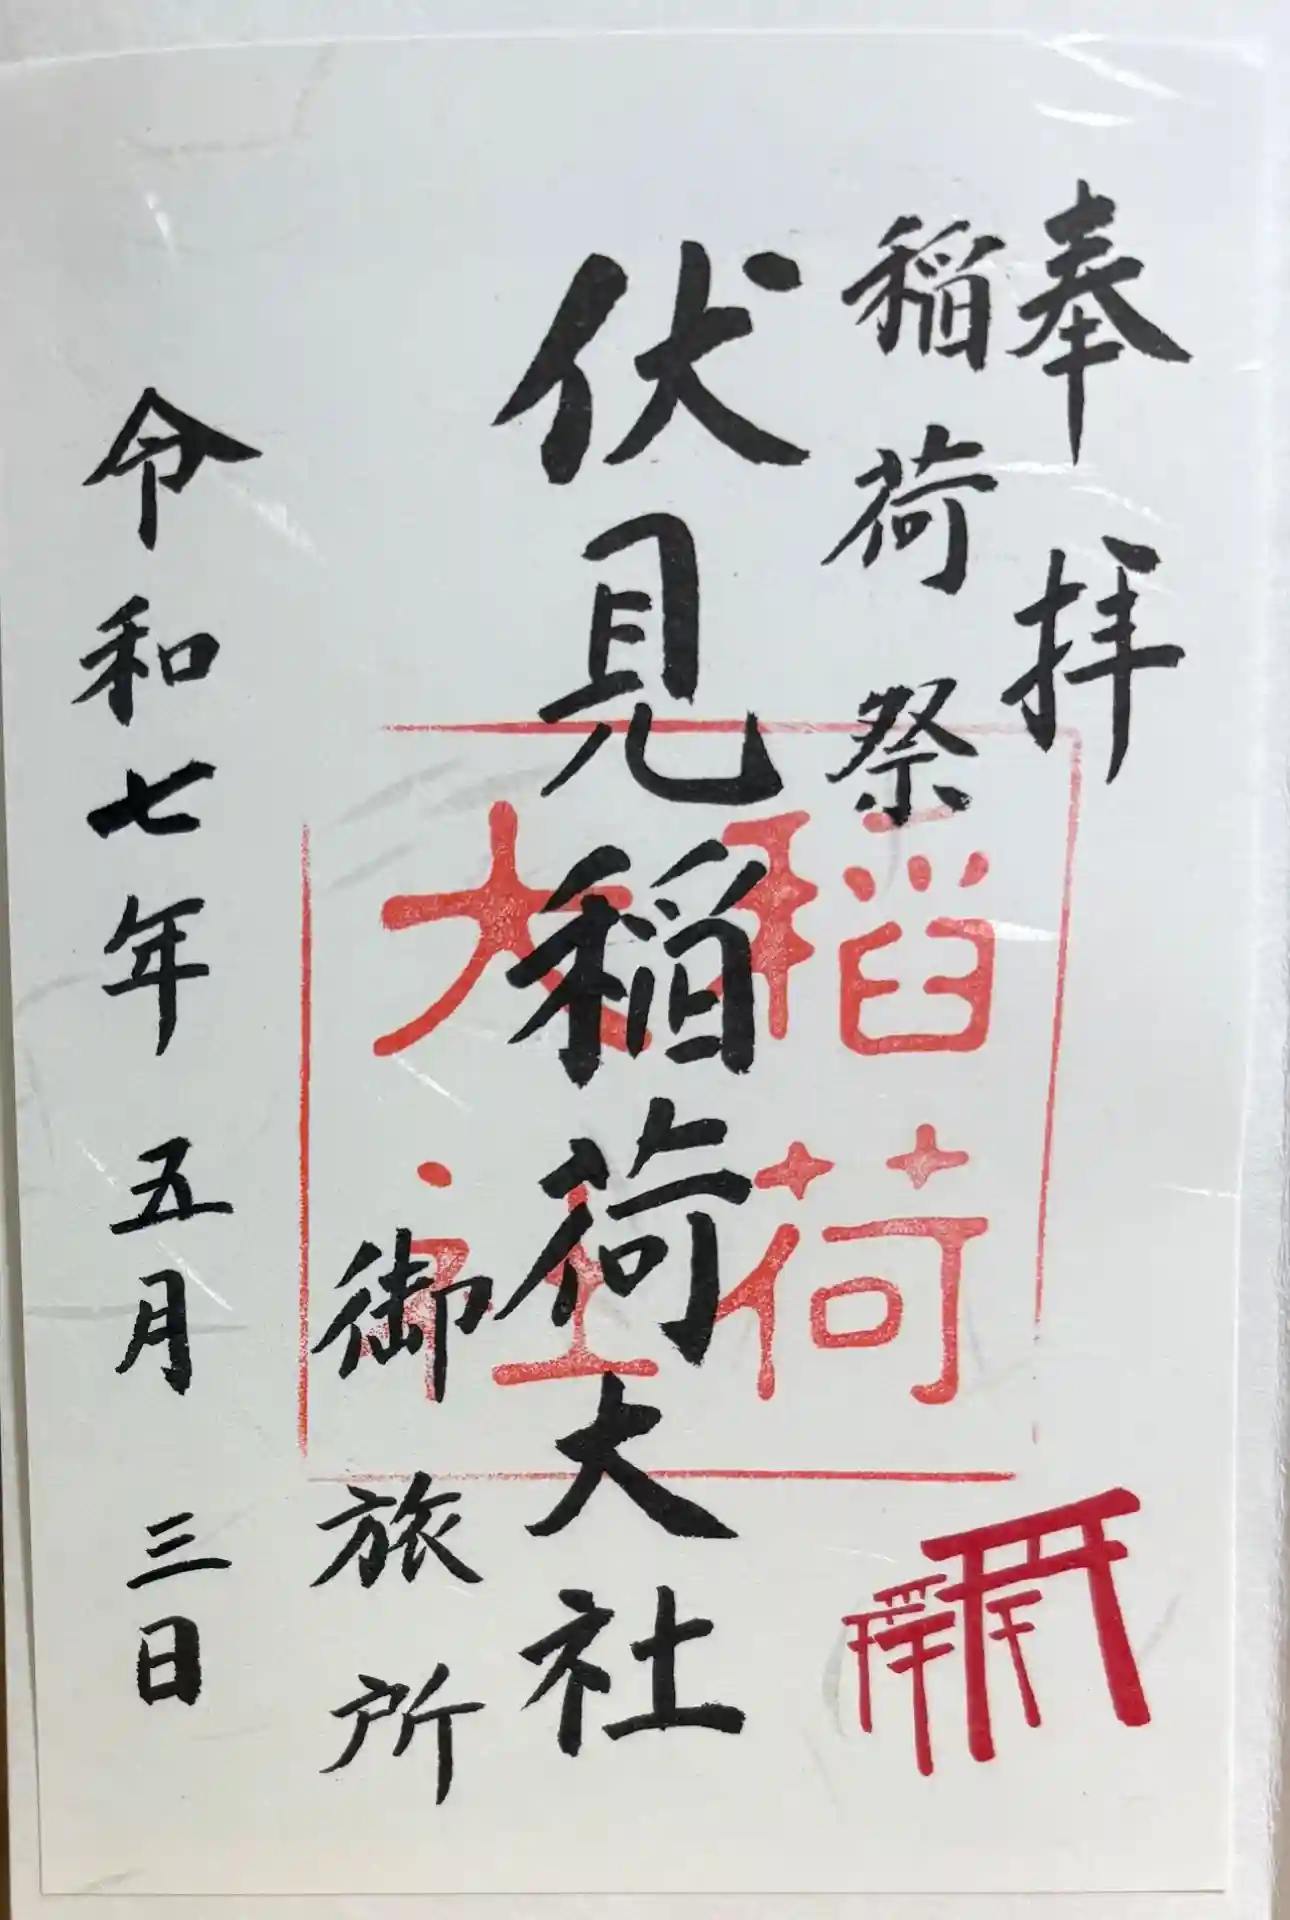 奉拝
稲荷祭
伏見稲荷大社
御旅所
令和七年 五月 三日
稲荷
大社